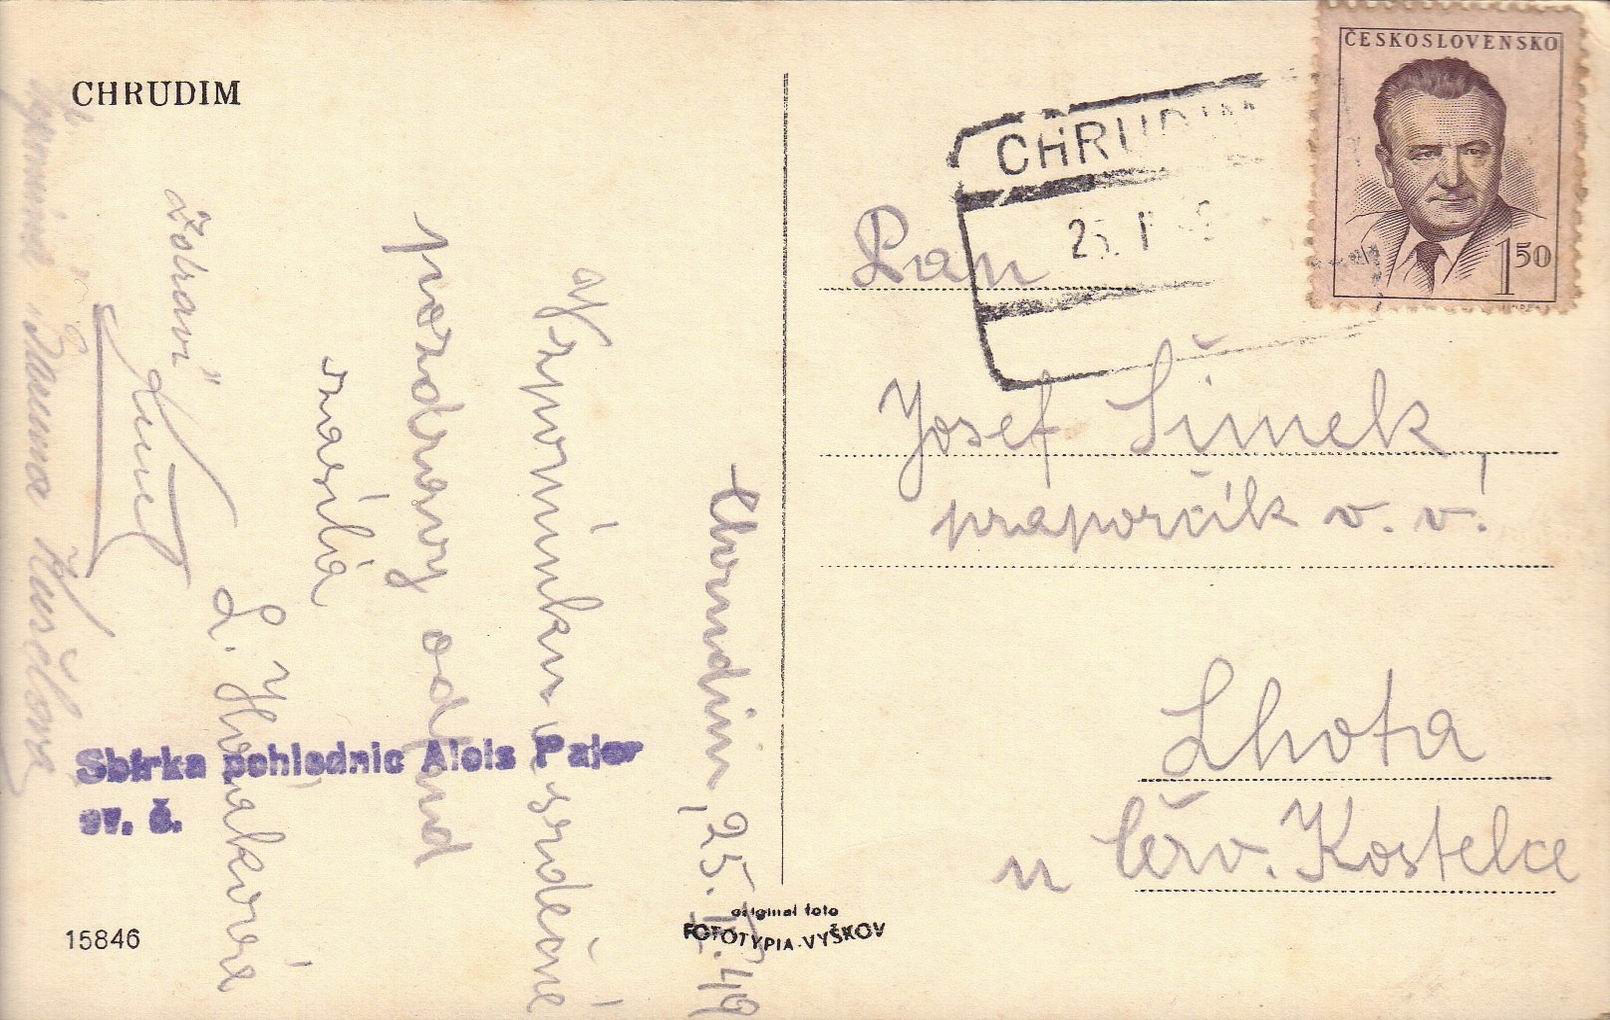 CHRUDIM
Chrudim, 25.II.49
Vzpomínku, srdečné
pozdravy odtud
zasílá
L. Hořáková
Zdraví
"Mařena Kuželová"
Sbírka pohlednic Alois Pajer
ev. č.
15846
original foto
FOTOTYPIA-VYŠKOV
ČESKOSLOVENSKO
1 50
CHRUDIM
25. I
Pan
Josef Šimek
praporčík v. v.!
Lhota
u Červ. Kostelce